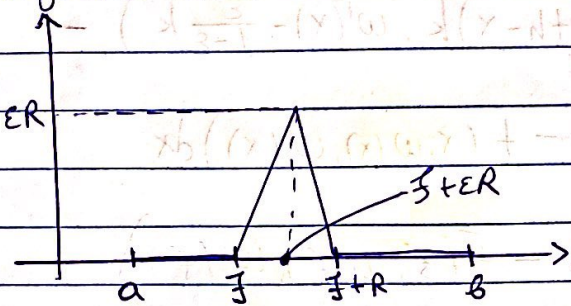 εR
ξ+εR
a
ξ
ξ+R
b